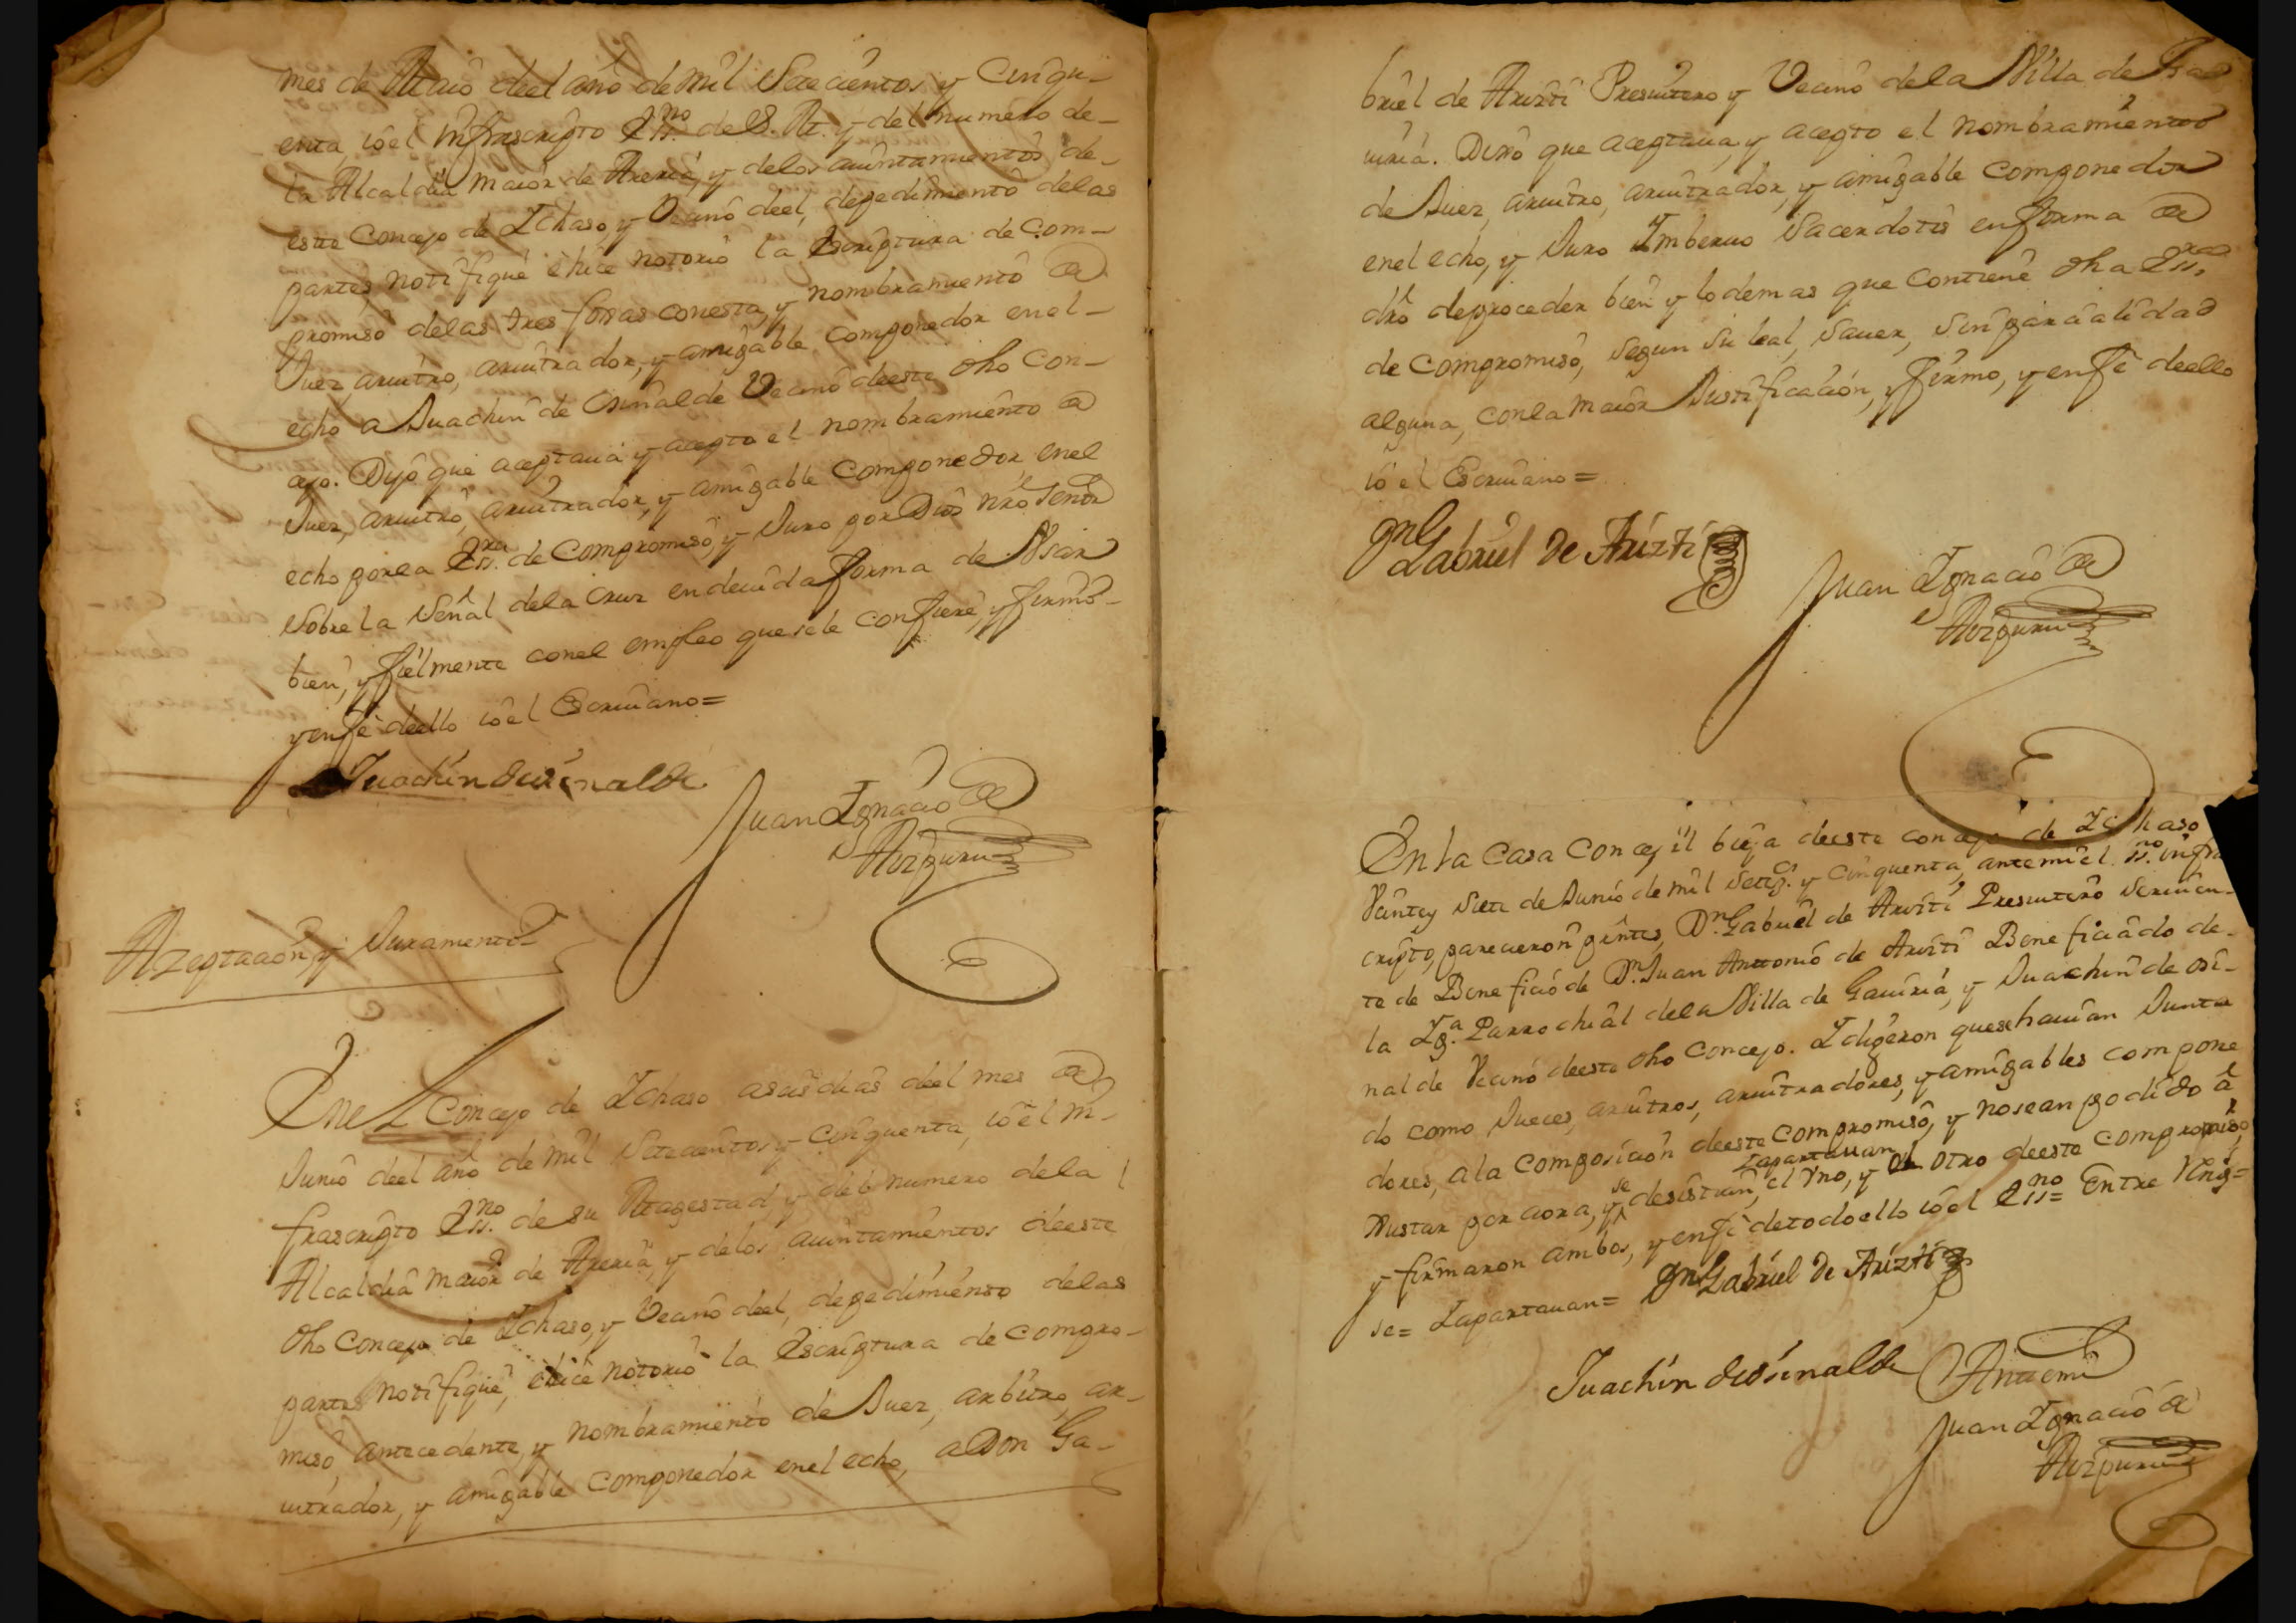 mes de Maio deel año de mil Setecientos y Cinqu-
enta, io el infrascripto Ess.no de S. M. y del numero de-
la Alcaldia maior de Areria, y delos aiuntamientos de-
este Concejo de Ichaso, y Vecino deel, depedimiento delas
partes, notifiqué é hice notorio la Escriptura de Com-
promiso delas tres foxas conesta, y nombramiento de
Juez, aruitro, aruitrador, y amigable componedor en el-
echo a Juachin de Osinalde Vecino deeste dho Con-
cejo. Dijo que aceptaua y acepto el nombramiento de
Juez, aruitro, aruitrador, y amigable Componedor, enel
echo porla Ess.ra de Compromiso, y Juro por Dios nró Señor
Sobre la Señal dela Cruz en deuida forma de Vsar
bien, y fielmente conel empleo que sele Confiere, y firmó-
y enfé deello io el Escriuano=
Juachin de osinalde
Juan Ignacio de
Aizpuru
Azeptación, y Juramento
Enel Concejo de Ichaso aseis dias deel mes de
Junio deel año de mil Setecientos y Cinquenta, io el in-
frascripto Ess.no de su Magestad, y del numero dela
Alcaldia maior de Areria, y delos aiuntamientos deeste
dho Concejo de Ichaso, y Vecino deel, depedimiento delas
partes notifiqué, é hice notorio la Escriptura de Compro-
miso antecedente, y nombramiento de Juez, arbitro, ar-
uitrador, y amigable Componedor enel echo, a Don Ga-
briel de Aristi Presuitero y Vecino dela Villa de Ga
uiria. Dixo que aceptaua, y acepto el nombramiento
de Juez, aruitro, aruitrador, y amigable Componedor
enel echo, y Juro Imberuo Sacerdotis enforma de
dro deproceder bien y lo demas que Contiene dha Ess.ra
de Compromiso, Segun Su leal, Sauer, Sin parcialidad
alguna, Conla maior Justificación, y firmo, y enfé deello
io el Escriuano=
Dn Gabriel de Arizti
Juan Ignacio de
Aizpuru
En la Casa Concejil bieja deeste concejo de Ichaso
Veintey Siete de Junio de mil Setez.s y Cinquenta, ante mi el ss.no infra
cripto, parecieron presentes, Dn Gabriel de Aristi Presuitero Seruien-
te de Beneficio de Dn Juan Antonio de Aristi Beneficiado de-
la Ig.a Parrochial dela Villa de Gauiria, y Juachin de osi-
nalde Vecino deeste dho Concejo. I digeron quesehauian Junta
do como Jueces, aruitros, aruitradores, y amigables compone
dores, ala Composición deeste Compromiso, y nosean podido a
Justar por aora, y se desistian, Iapartauan el Vno, y el otro deeste compromiso,
y firmaron ambos, y enfé detodoello io el Ess.no= Entre Reng=
se= Iapartauan= Dn Gabriel de Arizti
Juachin de osinalde Antemi
Juan Ignacio de
Aizpuru